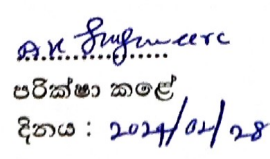 පරික්ෂා කළේ
දිනය : 2024/02/28